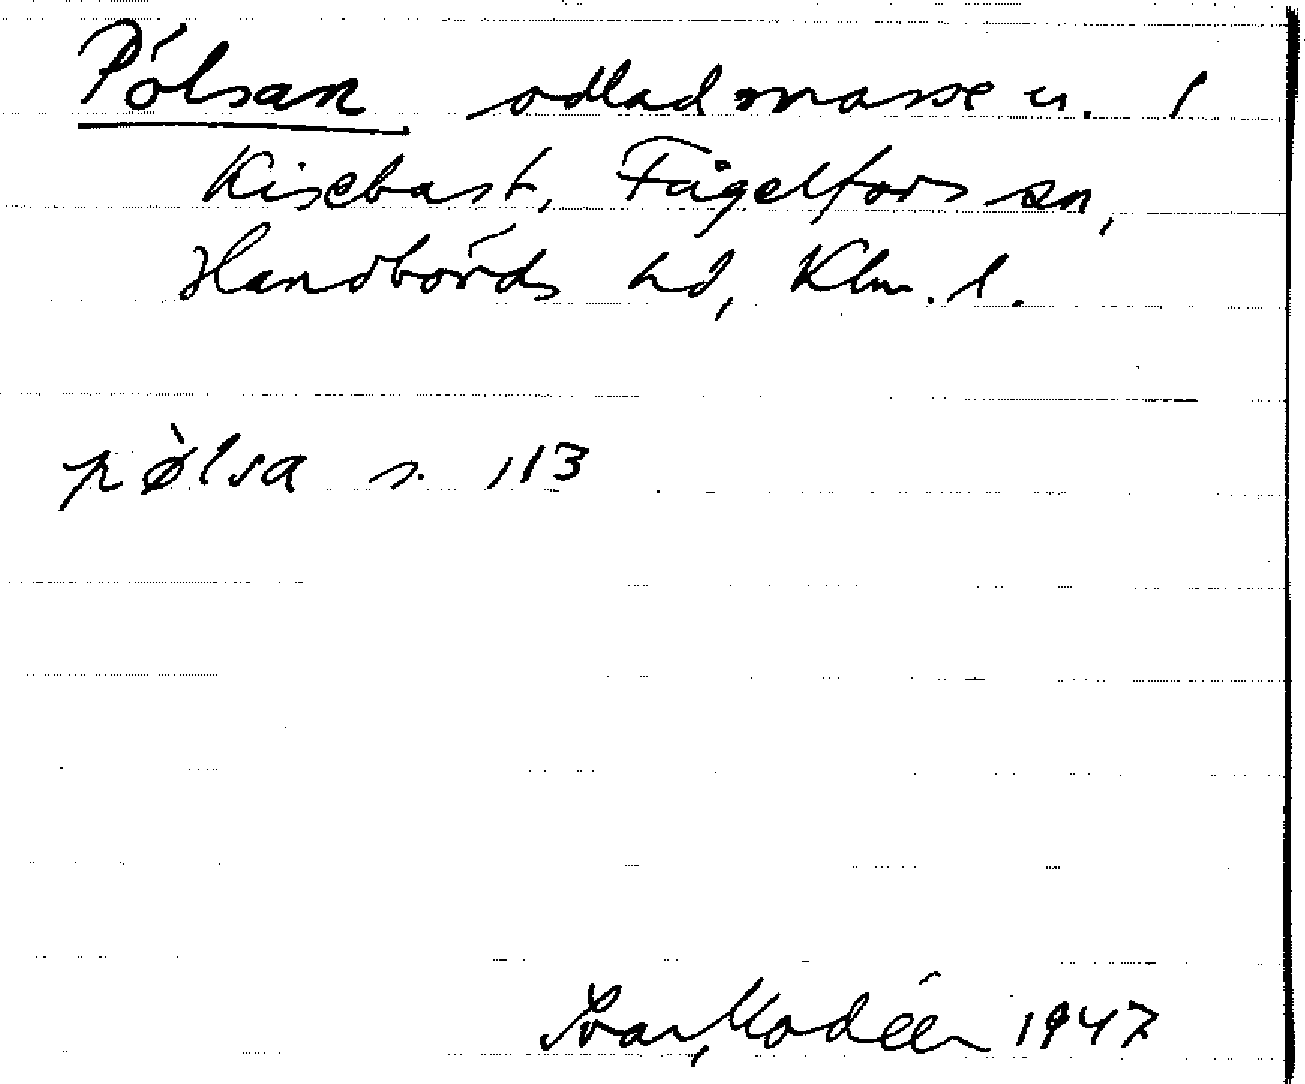 Pölsan odlad mosse u. 1
Kisebast, Fågelfors sn,
Handbörds hd, Klm. l.
pø̀lsa s. 113
Ivar Modéer 1947